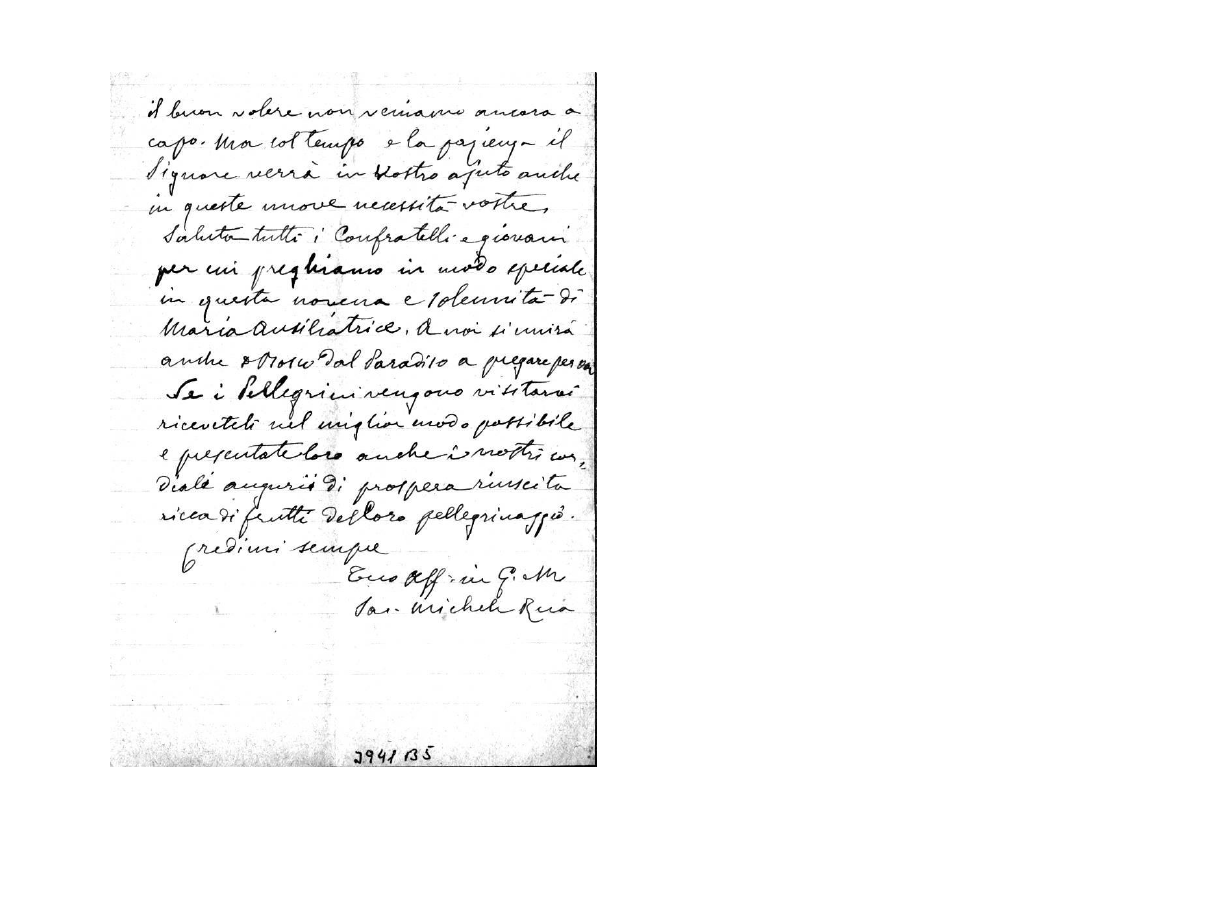 il buon volere non veniamo ancora a
capo. Ma col tempo e la pazienza il
Signore verrà in Vostro ajuto anche
in queste nuove necessità vostre.
Saluta tutti i Confratelli e giovani
per cui preghiamo in modo speciale
in questa novena e solennità di
Maria Ausiliatrice. A noi si unirà
anche D Bosco dal Paradiso a pregare per voi
Se i Pellegrini vengono visitarvi
riceveteli nel miglior modo possibile
e presentate loro anche i nostri cor-
diali augurii di prospera riuscita
ricca di frutti del loro pellegrinaggio.
Credimi sempre
Tuo Aff. in G. M
Sac. Michele Rua
3941 B5